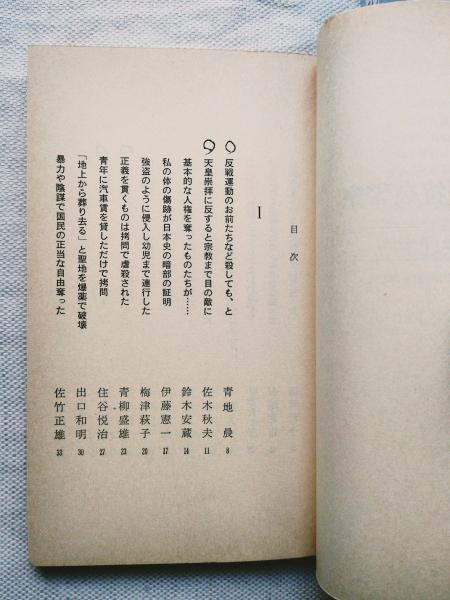 目次
I
反戦運動のお前たちなど殺しても、と 青地 晨 8
天皇崇拝に反すると宗教まで目の敵に 佐木秋夫 11
基本的な人権を奪ったものたちが…… 鈴木安蔵 14
私の体の傷跡が日本史の暗部の証明 伊藤憲一 17
強盗のように侵入し幼児まで連行した 梅津萩子 20
正義を貫くものは拷問で虐殺された 青柳盛雄 23
青年に汽車賃を貸しただけで拷問 住谷悦治 27
「地上から葬り去る」と聖地を爆薬で破壊 出口和明 30
暴力や陰謀で国民の正当な自由奪った 佐竹正雄 33